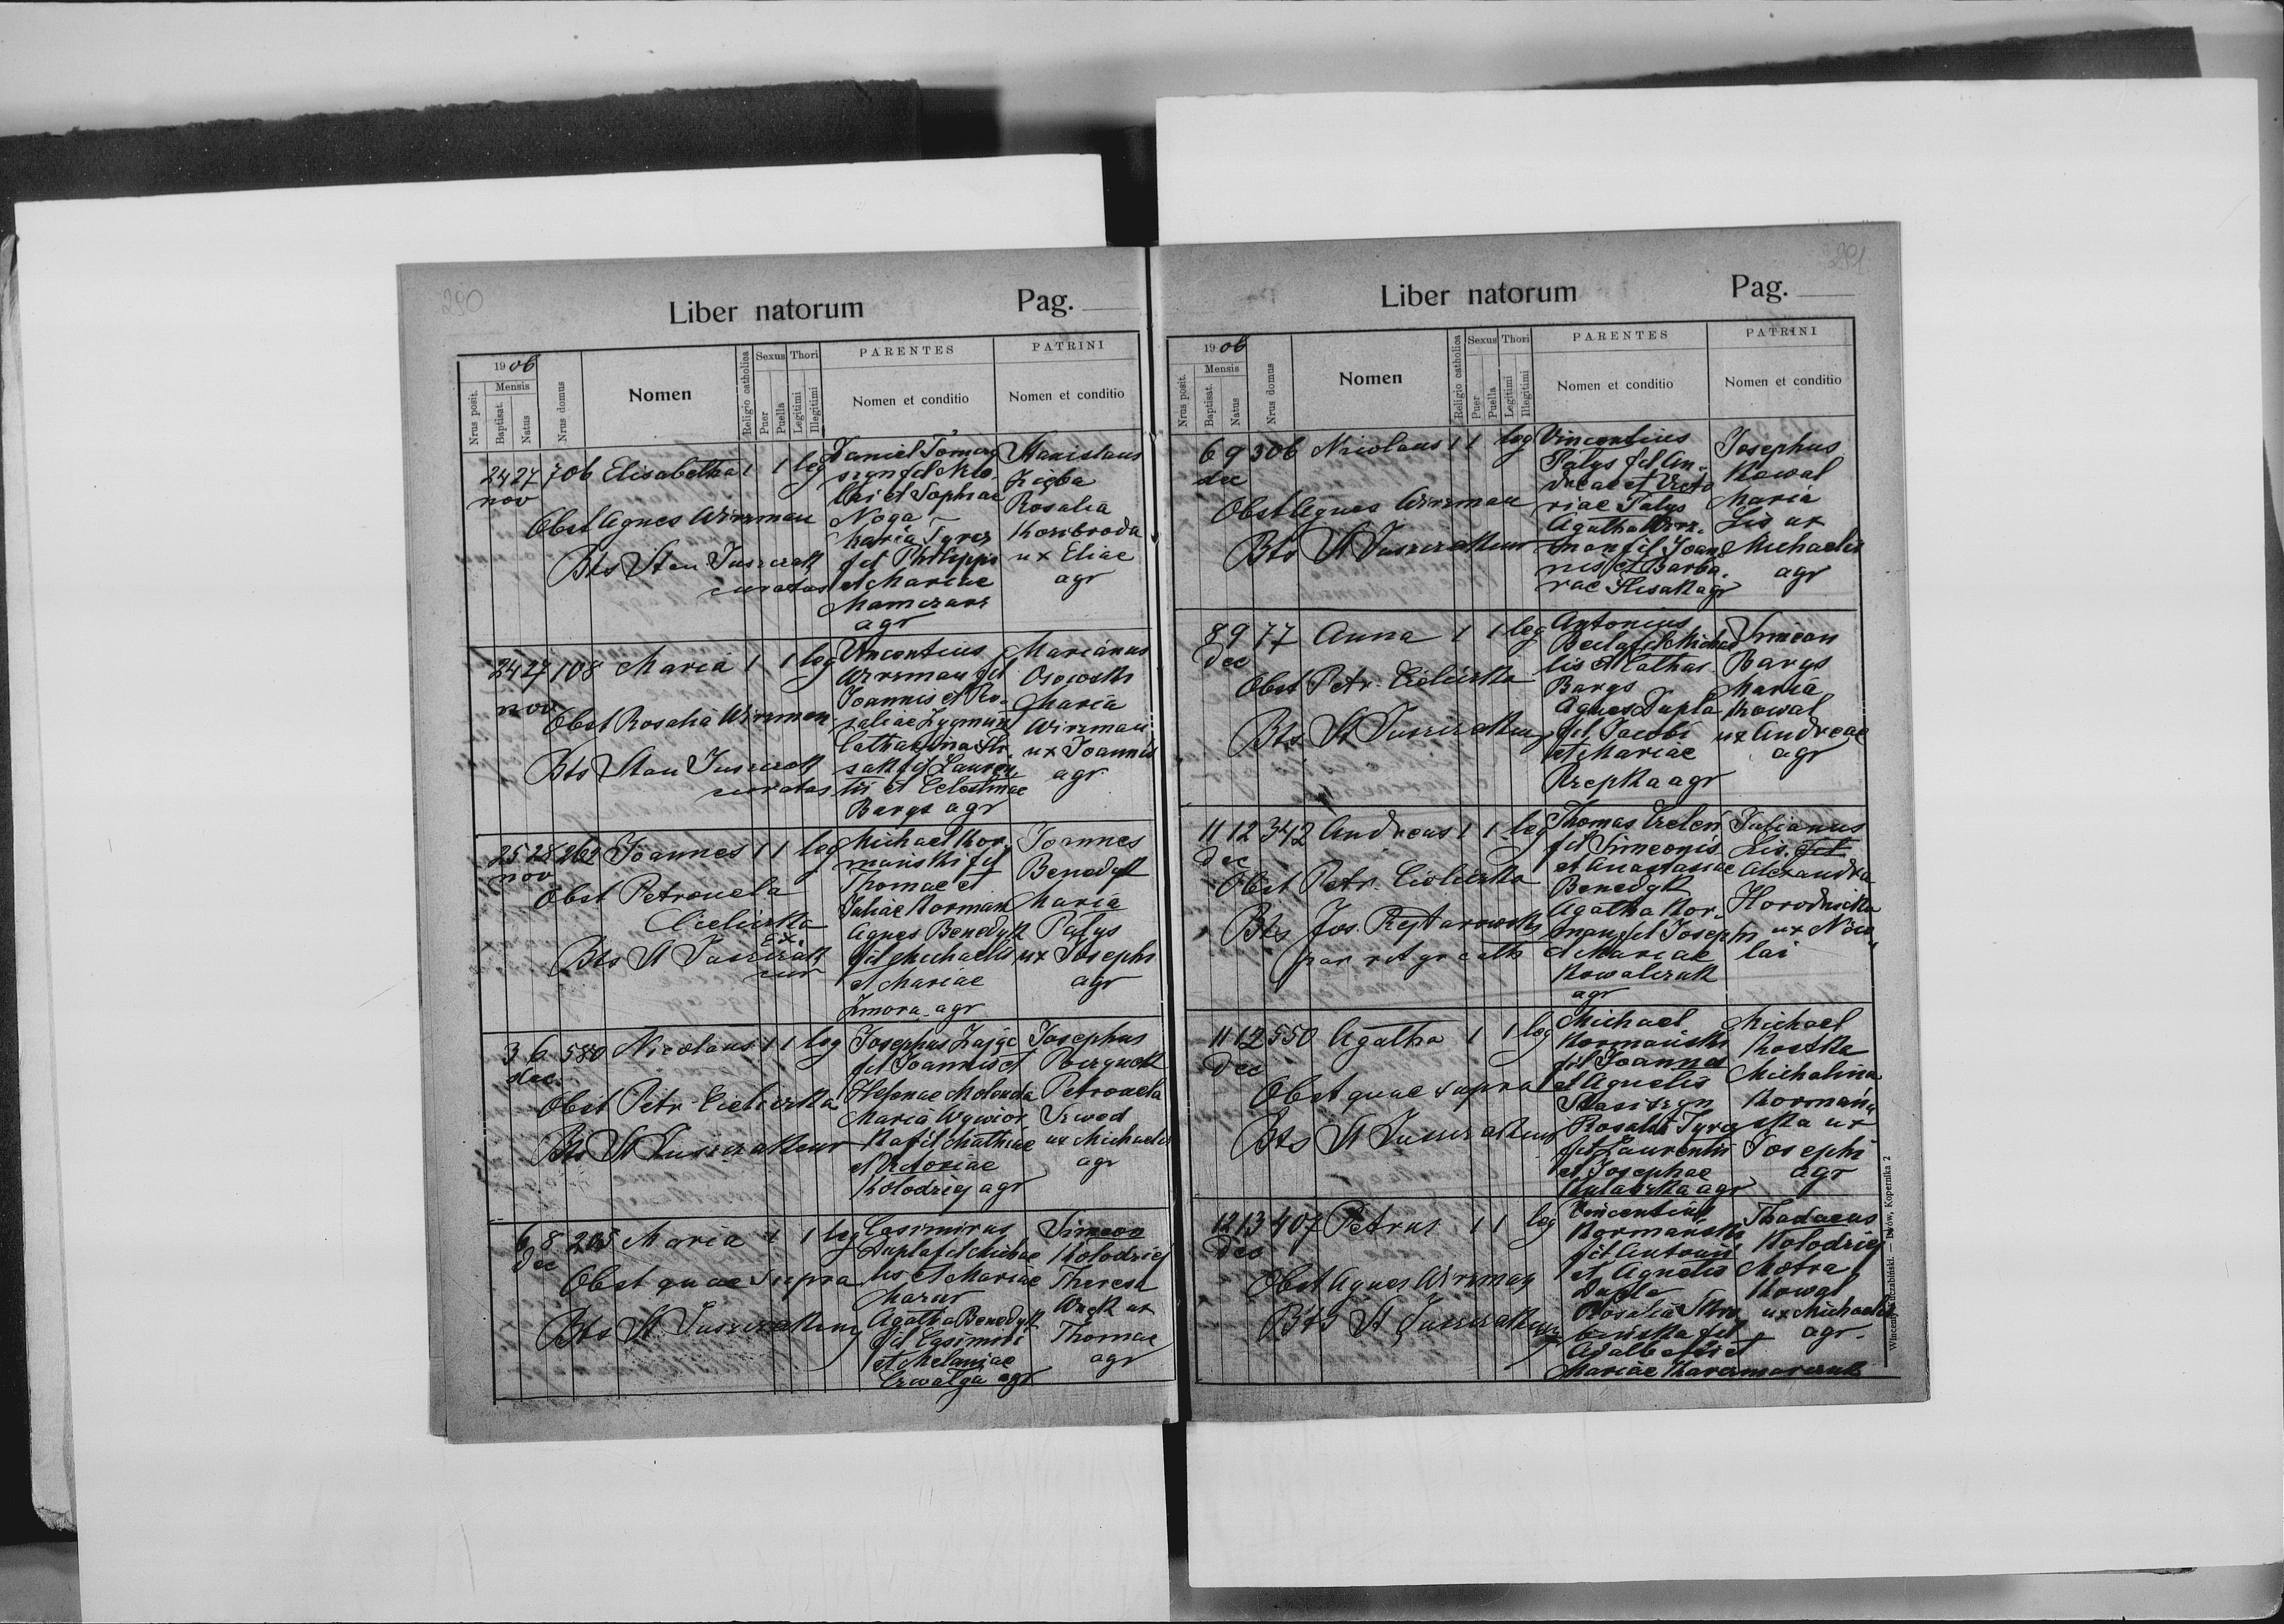 290
Liber natorum Pag.
1906
Mensis
Nrus posit.
Baptisat.
Natus
Nrus domus
Nomen
Religio catholica
Sexus
Puer
Puella
Thori
Legitimi
Illegitimi
PARENTES
Nomen et conditio
PATRINI
Nomen et conditio
24 27 706 Elisabetha 1 1 leg
nov
Obst Agnes Wirzman
Bts Stan Juszczak
curatus
Daniel
Noga
Maria
fil Philippi
et Mariae
agr
Stanislaus
Zięba
Rosalia
Kozibroda
ux Eliae
agr
24 27 108 Maria 1 1 leg
nov
Obst Rosalia Wirzman
Bts Stan Juszczak
curatus
Vincentius
Wirzman fil
Joannis et Ro-
saliae Zygmunt
Catharina
sak fil Lauren
tii et Celestinae
Bargs agr
Marianus
Maria
Wirzman
ux Joannis
agr
25 28 262 Joannes 1 1 leg
nov
Obst Petronela
Cieliczka
Bts St Juszczak
cur
Michael Kor-
mański fil
Thomae et
Juliae Korman
Agnes Benedyk
fil Michaelis
et Mariae
Zmora agr
Joannes
Benedyk
Maria
Patys
ux Josephi
agr
3 6 580 Nicolaus 1 1 leg
dec
Obst Petr Cieliczka
Bts St Juszczak cur
Josephus Zając
fil Joannis et
Helenae Molenda
Maria Wywior-
ka fil Mathiae
et Victoriae
Kolodziej agr
Josephus
Petronela
ux Michaelis
agr
6 8 205 Maria 1 1 leg
dec
Obst quae supra
Bts St Juszczak cur
Casimirus
Dupla fil Michae
lis et Mariae
Mazur
Agatha Benedyk
fil Casimiri
et Melaniae
Czwalga agr
Simeon
Kolodziej
Theresa
Wnęk ux
Thomae
agr
291
Liber natorum Pag.
1906
Mensis
Nrus posit.
Baptisat.
Natus
Nrus domus
Nomen
Religio catholica
Sexus
Puer
Puella
Thori
Legitimi
Illegitimi
PARENTES
Nomen et conditio
PATRINI
Nomen et conditio
6 9 306 Nicolaus 1 1 leg
dec
Obst Agnes Wirzman
Bts St Juszczak cur
Vincentius
Patys fil An-
dreae et Victo
riae Patys
Agatha Wirz-
man fil Joan-
nis et Barba-
rae agr
Josephus
Kowal
Maria
Lis ux
Michaelis
agr
8 9 77 Anna 1 1 leg
Dec
Obst Petr. Cieliczka
Bts St Juszczak cur
Antonius
fil Michae
lis et Cathar
Bargs
Agnes Dupla
fil Jacobi
et Mariae
Rzepka agr
Simeon
Bargs
Maria
Kowal
ux Andreae
agr
11 12 342 Andreas 1 1 leg
Dec
Obst Petr. Cieliczka
Bts Jos. Rejtarowski
par rit gr cath
Thomas
fil Simeonis
et Anastasiae
Benedyk
Agatha Kor-
man fil Josephi
et Mariae
Kowalczuk
agr
Julianus
Lis
Alexandra
Horodnicka
ux Nico-
lai
11 12 550 Agatha 1 1 leg
Dec
Obst quae supra
Bts St Juszczak cur
Michael
Kormański
fil Joannis
et Agnetis
Stasiszyn
Rosalia
fil Laurentii
et Josephae
agr
Michael
Kostka
Michalina
Kormań-
ska ux
Josephi
agr
12 13 407 Petrus 1 1 leg
Dec
Obst Agnes Wirzman
Bts St Juszczak cur
Vincentius
Kormański
fil Antonii
et Agnetis
Dupla
Rosalia
fil
Adalberti et
Mariae Karczmarczuk
Thadaeus
Kolodziej
Motra
Kowal
ux Michaelis
agr.
Wincenty Kuczabiński. — Lwów, Kopernika 2